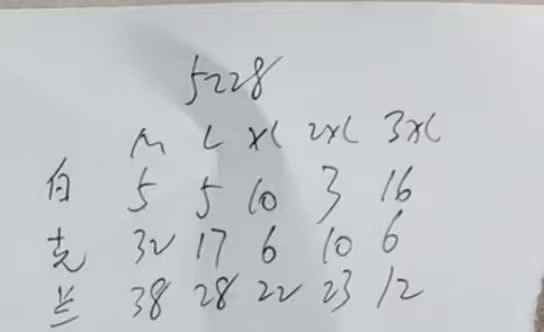 5228
M L XL 2XL 3XL
白 5 5 10 3 16
克 32 17 6 10 6
兰 38 28 22 23 12